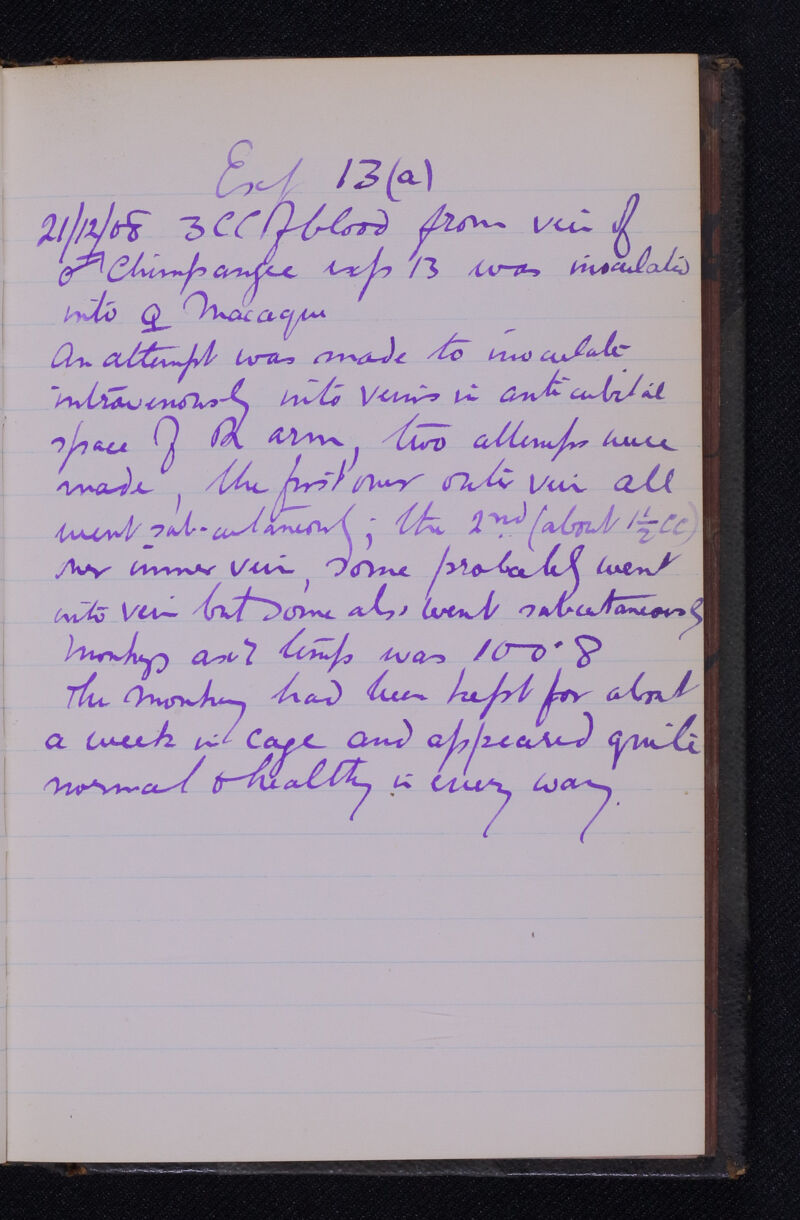 Exp 13(a)
21/12/08 3 CC of blood from vein of
♂ Chimpanzee exp 13 was inoculated
into ♀ Macaque
An attempt was made to inoculate
intravenously into veins in anticubital
space of R arm, two attempts were
made, the first over outer vein all
went sub-cutaneously; the 2nd (about 1½ CC)
over inner vein, some probably went
into vein but some also went subcutaneously
Monkeys temp was 100.8
The monkey had been kept for about
a week in cage and appeared quite
normal & healthy in every way.